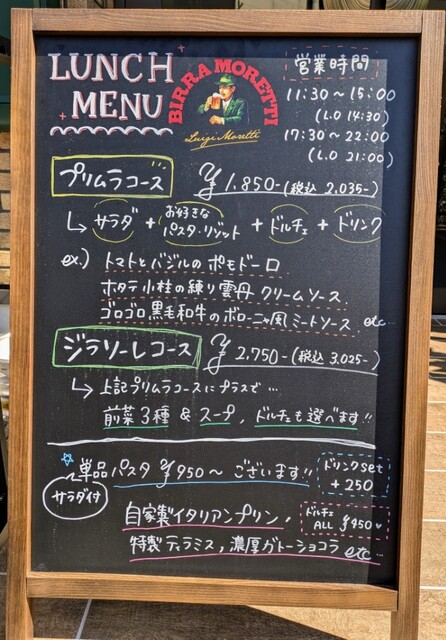 LUNCH
MENU
BIRRA MORETTI
Luigi Moretti
営業時間
11:30～15:00
(L.O 14:30)
17:30～22:00
(L.O 21:00)
プリムラコース ¥1.850-(税込 2.035-)
サラダ + お好きなパスタ・リゾット + ドルチェ + ドリンク
ex.) トマトとバジルのポモドーロ
ホタテ小柱の練り雲丹 クリームソース
ゴロゴロ黒毛和牛のボローニャ風ミートソース etc…
ジラソーレコース ¥2.750-(税込 3.025-)
上記プリムラコースにプラスで…
前菜3種 & スープ、ドルチェも選べます!!
単品パスタ ¥950～ ございます!!
サラダ付
ドリンクset
+250
自家製イタリアンプリン、
ドルチェ
ALL ¥450
特製ティラミス, 濃厚ガトーショコラ etc…